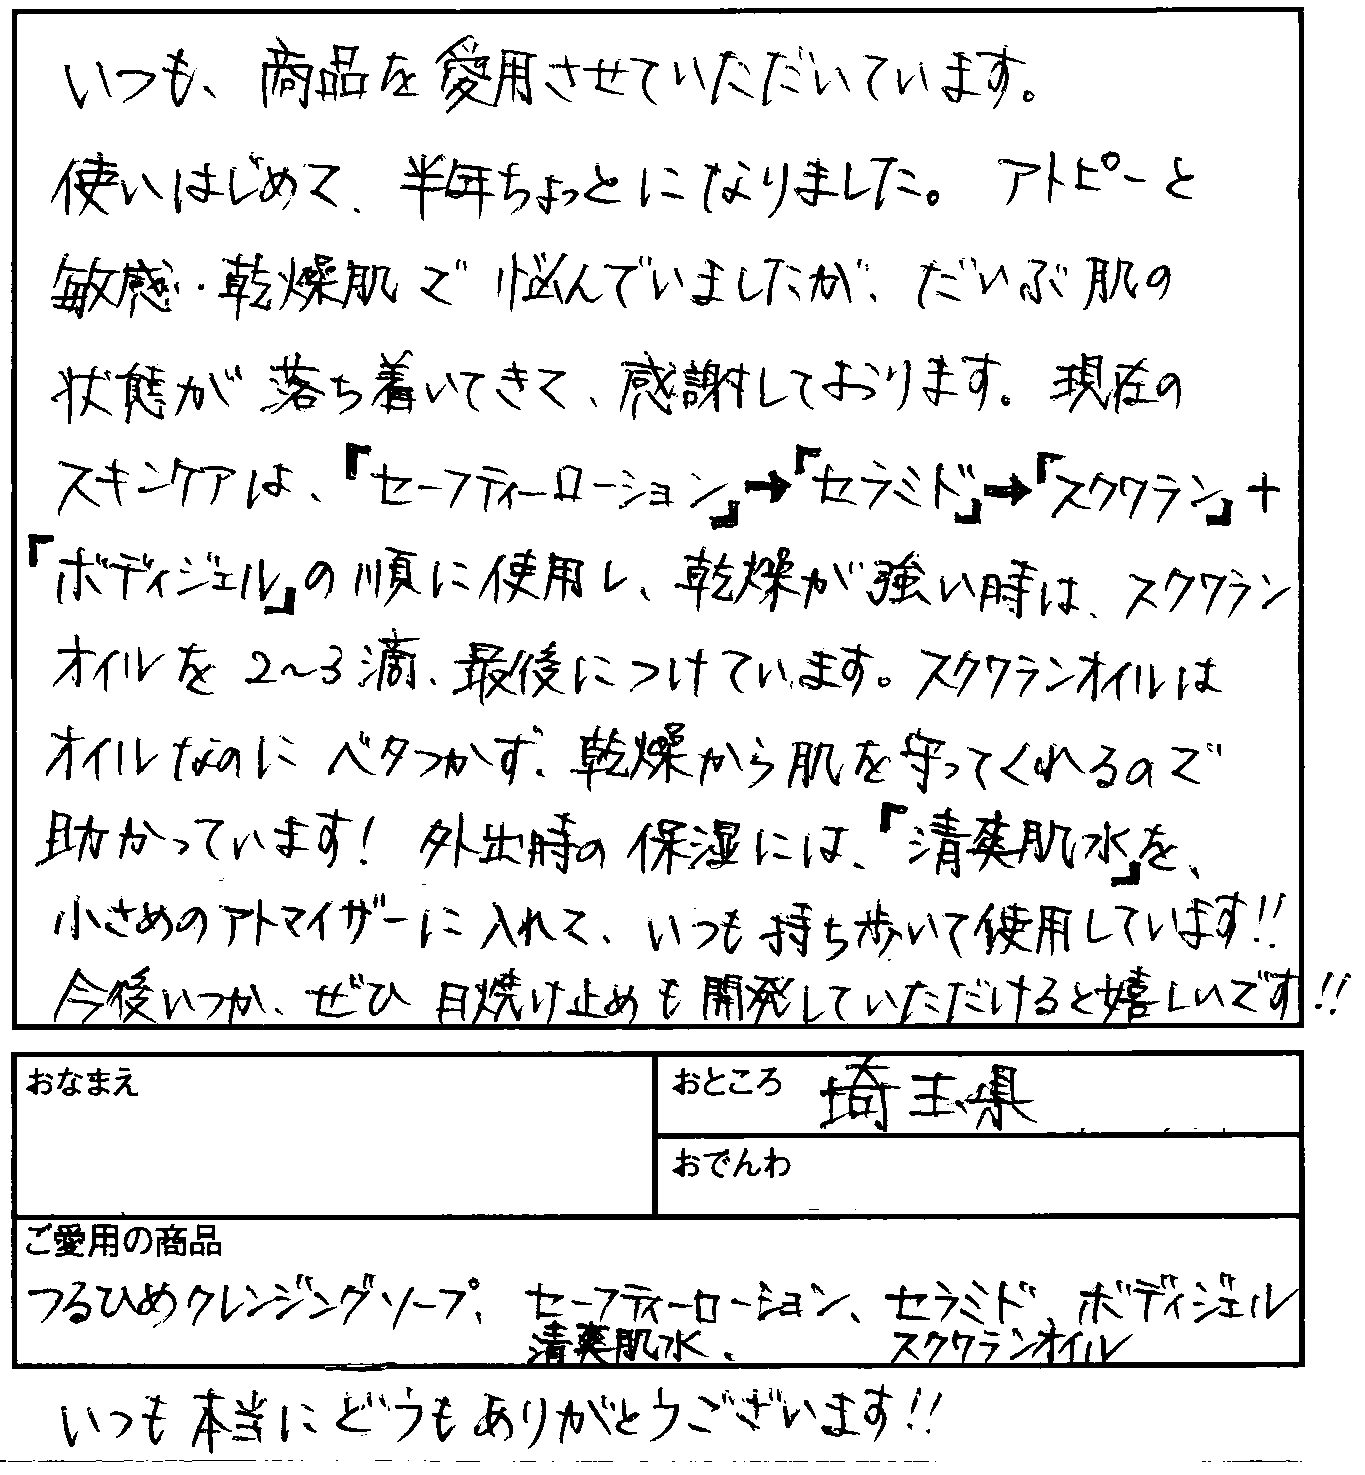 いつも、商品を愛用させていただいています。
使いはじめて、半年ちょっとになりました。アトピーと
敏感・乾燥肌で悩んでいましたが、だいぶ肌の
状態が落ち着いてきて、感謝しております。現在の
スキンケアは、『セーフティーローション』→『セラミド』→『スクワラン』+
『ボディジェル』の順に使用し、乾燥が強い時は、スクワラン
オイルを2~3滴、最後につけています。スクワランオイルは
オイルなのにベタつかず、乾燥から肌を守ってくれるので
助かっています!外出時の保湿には、『清爽肌水』を、
小さめのアトマイザーに入れて、いつも持ち歩いて使用しています!!
今後いつか、ぜひ日焼け止めも開発していただけると嬉しいです!!
おなまえ
おところ 埼玉県
おでんわ
ご愛用の商品
つるひめクレンジングソープ、セーフティーローション、セラミド、ボディジェル
清爽肌水、スクワランオイル
いつも本当にどうもありがとうございます!!